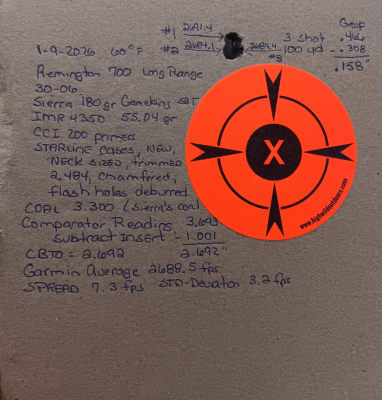 #1 2691.4
Group
1-9-2026 60°F #2 2684.1 2689.4 3 shot .466
#3 100 yd - .308
.158"
Remington 700 Long Range
30-06
Sierra 180 gr Gameking SBT
IMR 4350 55.04 gr
CCI 200 primers
STARLINE CASES, NEW,
NECK SIZED, trimmed
2.484, chamfered,
flash holes deburred
COAL 3.300 (Sierra's coal
Comparator Reading 3.693
Subtract Insert - 1.001
CBTO = 2.692 2.692"
Garmin Average 2688.5 fps
SPREAD 7.3 fps STD-Deviation 3.2 fps
X
www.highwildoutdoors.com